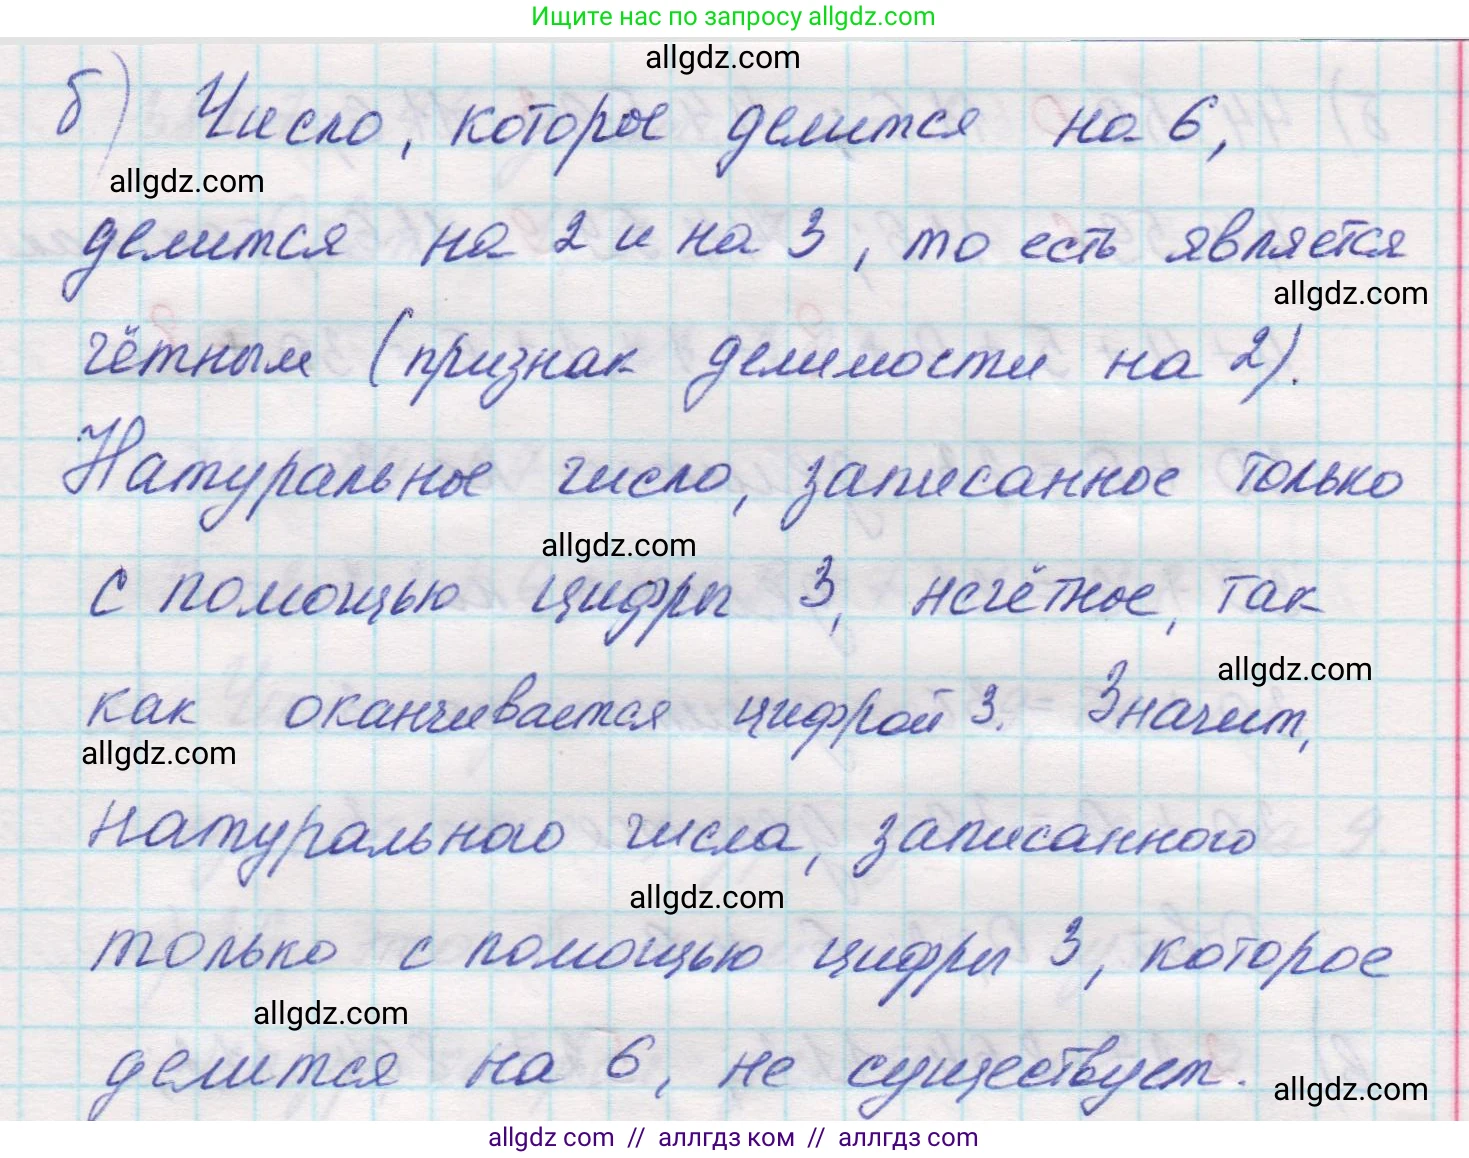 Ищите нас по запросу allgdz.com
allgdz.com
б) Число, которое делится на 6,
allgdz.com
делится на 2 и на 3, то есть является
allgdz.com
чётным (признак делимости на 2).
Натуральное число, записанное только
allgdz.com
с помощью цифры 3, нечётное, так
allgdz.com
как оканчивается цифрой 3. Значит,
allgdz.com
натурального числа, записанного
allgdz.com
только с помощью цифры 3, которое
allgdz.com
делится на 6, не существует.
allgdz.com
allgdz com // аллгдз ком // аллгдз com